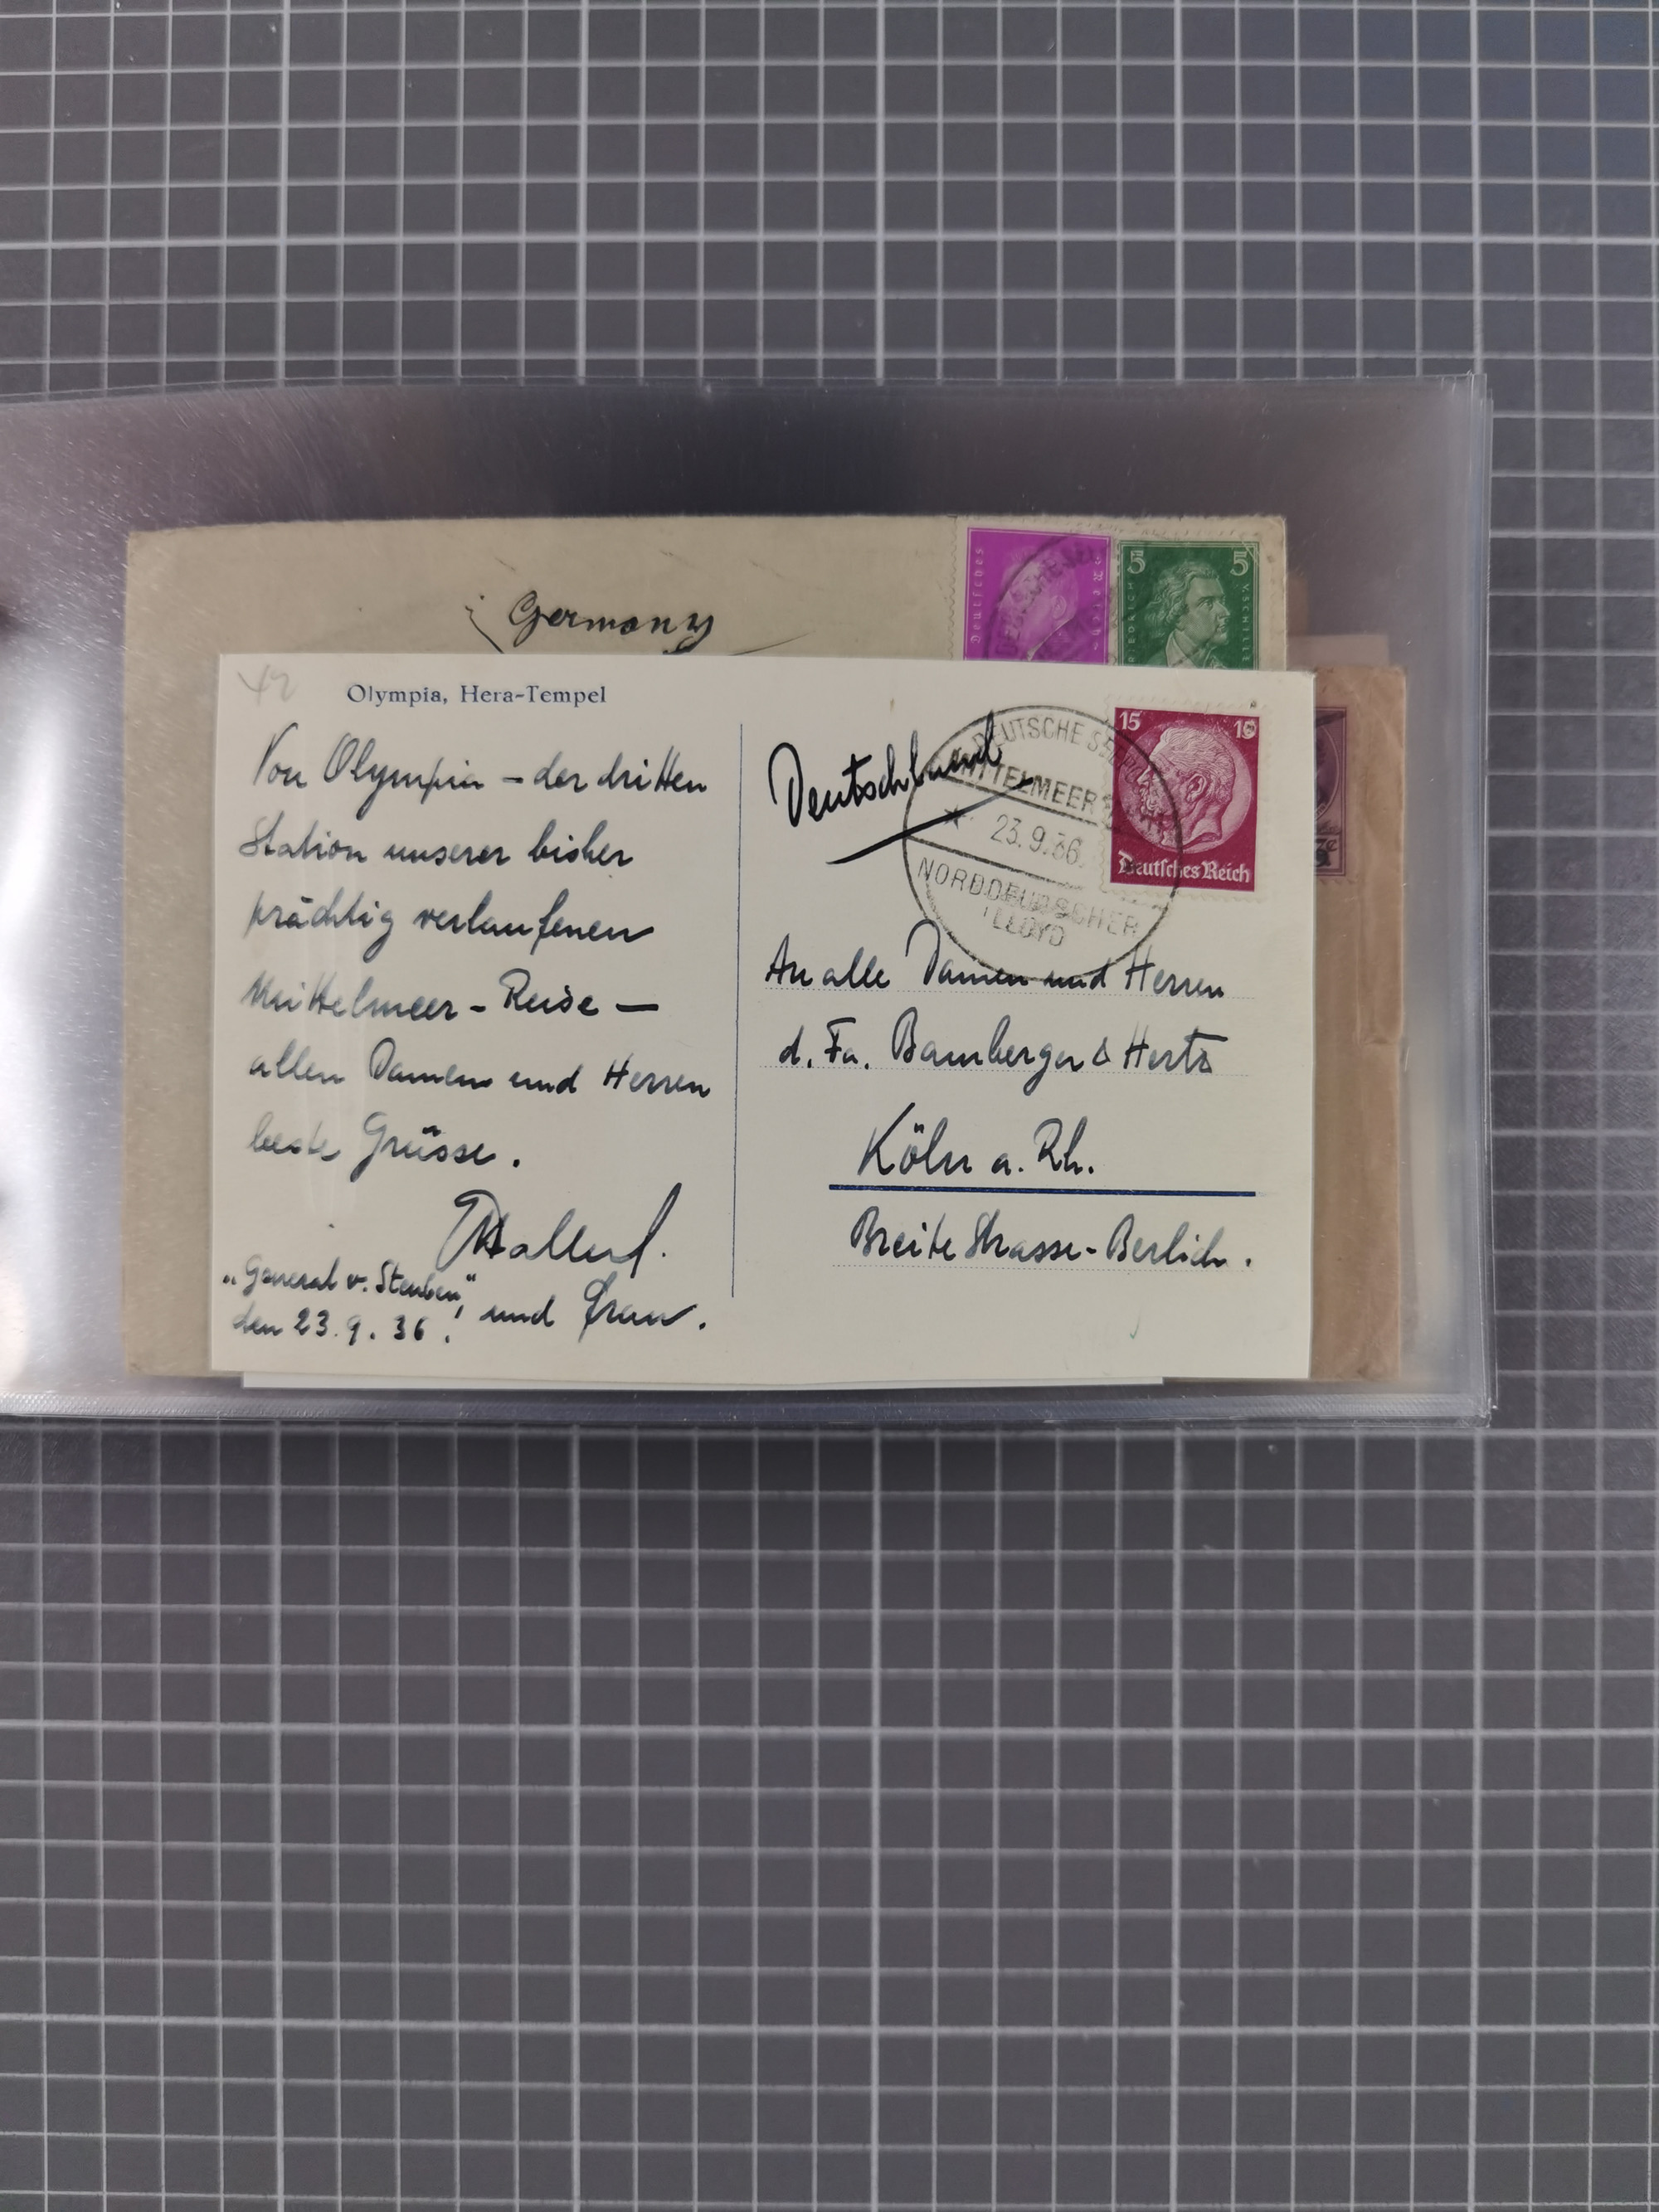 Germany
Deutsches Reich
5 5
FRIEDRICH V. SCHILLER
42
Olympia, Hera-Tempel
Von Olympia – der dritten
Station unserer bisher
prächtig verlaufenen
Mittelmeer-Reise –
allen Damen und Herren
beste Grüsse.
und Frau.
„General v. Steuben",
den 23.9.36.
Deutschland
DEUTSCHE
MITTELMEER
23.9.36
NORDDEUTSCHER
LLOYD
15 15
Deutsches Reich
An alle Damen und Herren
d. Fa. Bamberger & Hertz
Köln a. Rh.
Breite Strasse-Berlich.